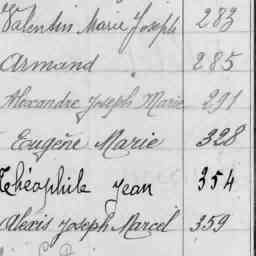 Valentin Marie Joseph 283
Armand 285
Alexandre Joseph Marie 291
Eugène Marie 328
Théophile Jean 354
Alexis Joseph Marcel 359